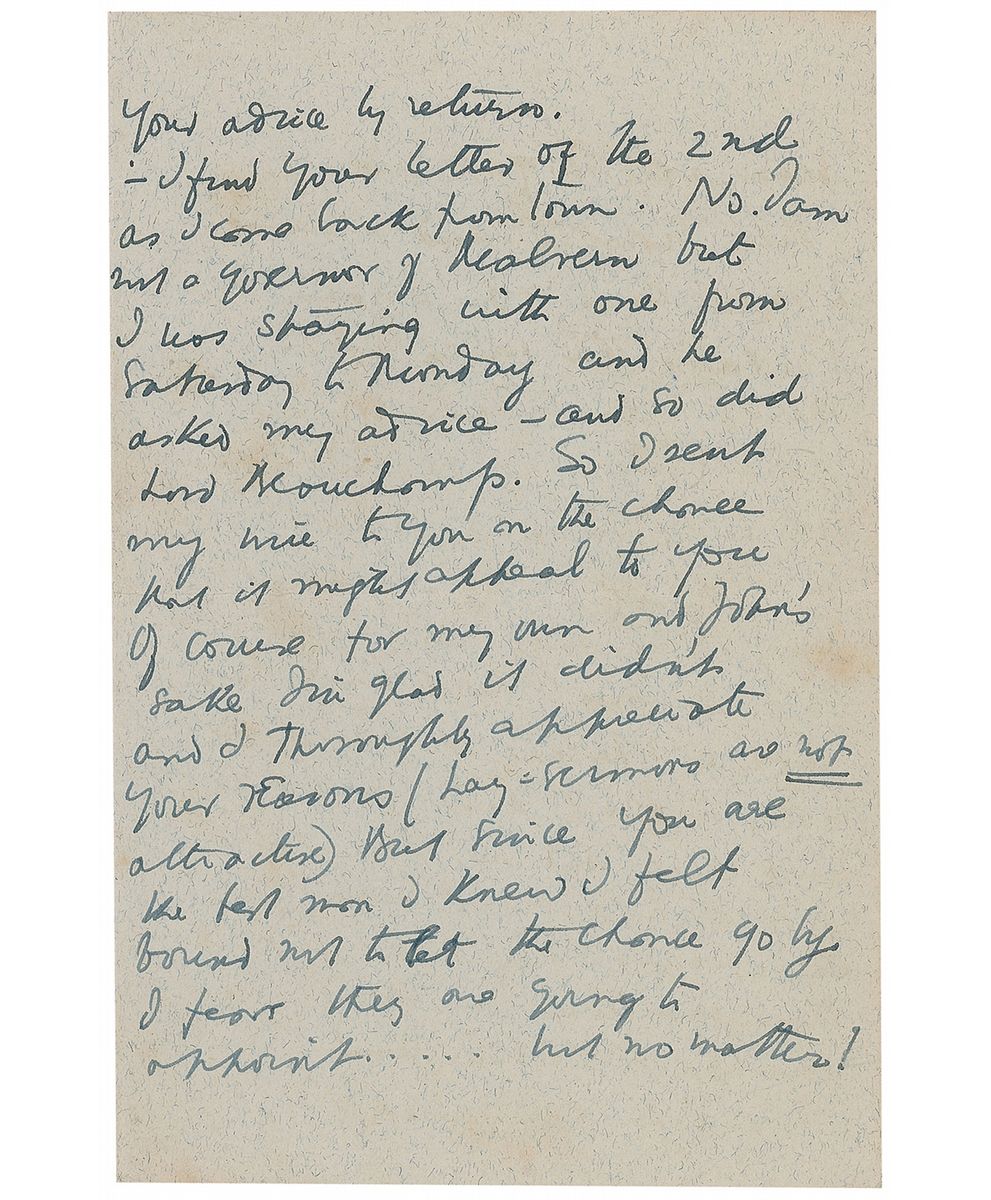 your advice by return.
– I find your letter of the 2nd
as I come back from town. No. I am
not a governor of Malvern but
I was staying with one from
Saturday to Monday and he
asked my advice – and so did
Lord Beauchamp. So I sent
my wire to you on the chance
that it might appeal to you
Of course for my own and John's
sake I'm glad it didn't
and I thoroughly appreciate
your reasons (Lay-sermons are not
attractive) But since you are
the best man I knew I felt
bound not to let the chance go by
I fear they are going to
appoint..... but no matter!